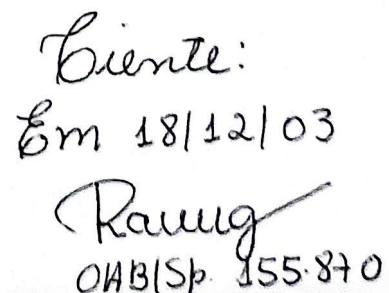 Ciente:
Em 18/12/03
OAB/Sp. 155.870